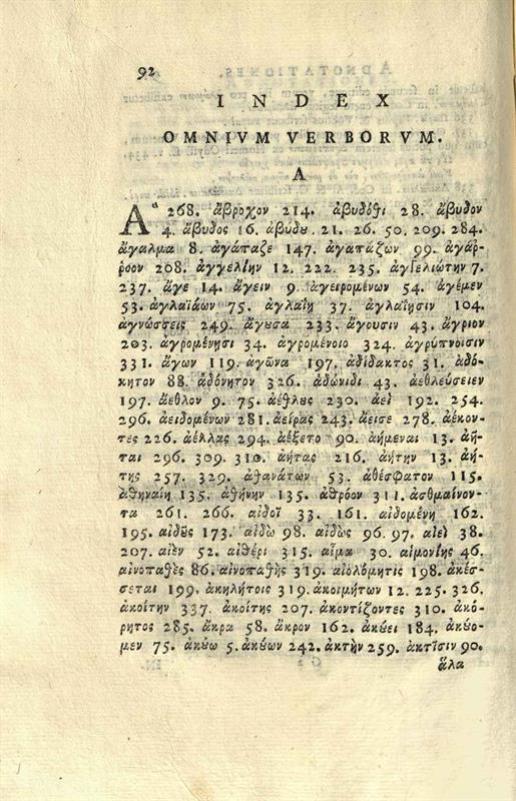 92
INDEX
OMNIVM VERBORVM.
A
Ἀ 268. ἄβροχον 214. ἀβυδόθι 28. ἄβυδον
4. ἄβυδος 16. ἀβύδȣ. 21. 26. 50. 209. 284.
ἄγαλμα 8. ἀγάπαζε 147. ἀγαπάζων 99. ἀγάρ-
ροον 208. ἀγγελίην 12. 222. 235. ἀγγελιώτην 7.
237. ἄγε 14. ἄγειν 9. ἀγειρομένων 54. ἀγέμεν
53. ἀγλαϊάων 75. ἀγλαΐη 37. ἀγλαΐησιν 104.
ἀγνώσσεις 249. ἄγȣσα 233. ἄγουσιν 43. ἄγριον
203. ἀγρομένησι 34. ἀγρομένοιο 324. ἀγρύπνοισιν
331. ἄγων 119. ἀγῶνα 197. ἀδίδακτος 31. ἀδό-
κητον 88. ἀδόνητον 326. ἀδώνιδι 43. ἀεθλεύσειεν
197. ἄεθλον 9. 75. ἀέθλȣς 230. ἀεὶ 192. 254.
296. ἀειδομένων 281. ἀείρας 243. ἄεισε 278. ἀέκον-
τες 226. ἀέλλας 294. ἀέξετο 90. ἀήμεναι 13. ἀῆ-
ται 296. 309. 310. ἀήτας 216. ἀήτην 13. ἀή-
της 257. 329. ἀθανάτων 53. ἀθέσφατον 115.
ἀθηναίη 135. ἀθήνην 135. ἀθρόον 311. ἀσθμαίνον-
τα 261. 266. αἰδοῖ 33. 161. αἰδομένη 162.
195. αἰδȣ͂ς 173. αἰδὼ 98. αἰδὼς 96. 97. αἰεὶ 38.
207. αἰὲν 52. αἰθέρι 315. αἷμα 30. αἱμονίης 46.
αἰνοπαθὲς 86. αἰνοπαθὴς 319. αἰολόμητις 198. ἀκέσ-
σεται 199. ἀκηλήτοις 319. ἀκοιμήτων 12. 225. 326.
ἀκοίτην 337. ἀκοίτης 207. ἀκοντίζοντες 310. ἀκό-
ρητος 285. ἄκρα 58. ἄκρον 162. ἀκȣ́ει 184. ἀκȣ́ο-
μεν 75. ἀκȣ́ω 5. ἀκȣ́ων 242. ἀκτὴν 259. ἀκτῖσιν 90.
ἅλα